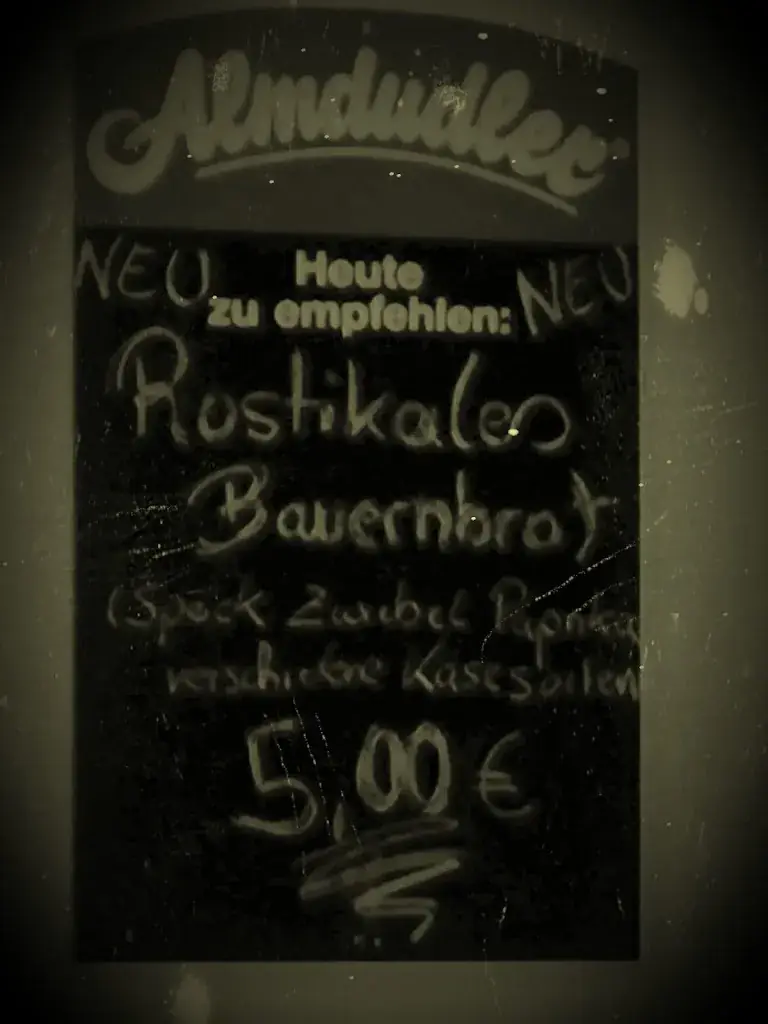 Almdudler
NEU Heute NEU
zu empfehlen:
Rustikales
Bauernbrot
(Speck Zwiebel Paprika
verschidene Käsesorten
5,00 €